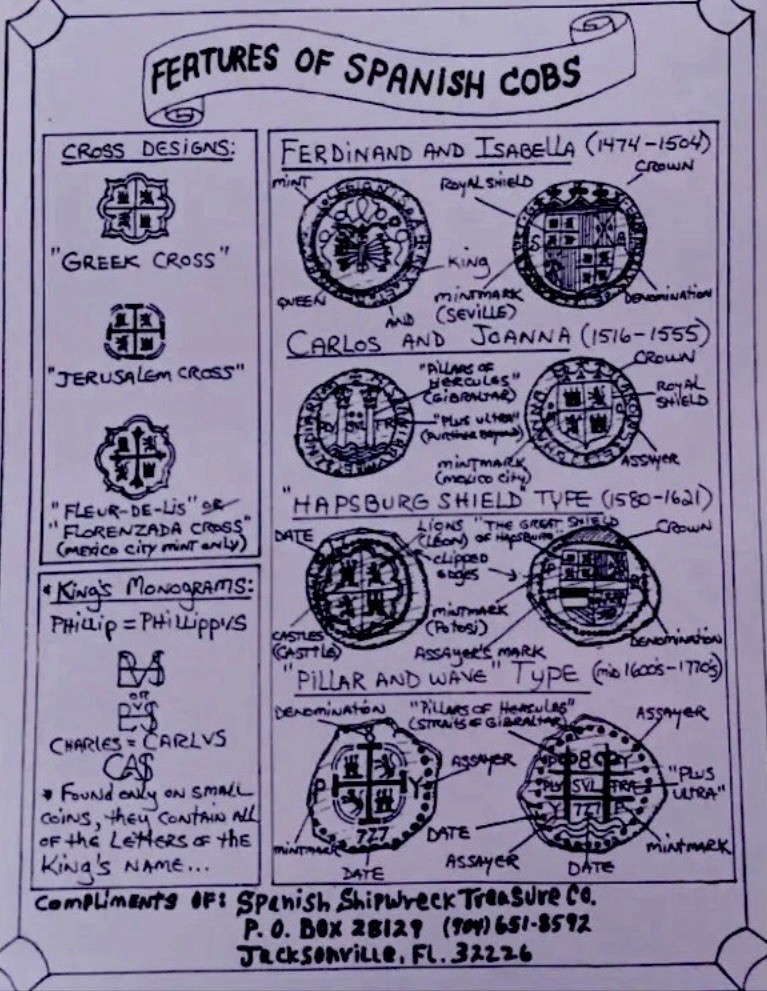 FEATURES OF SPANISH COBS
CROSS DESIGNS:
"GREEK CROSS"
"JERUSALEM CROSS"
"FLEUR-DE-LIS" OR
"FLORENZADA CROSS"
(MEXICO CITY MINT ONLY)
* KING'S MONOGRAMS:
PHILLIP = PHILLIPPVS
OR
CHARLES = CARLVS
* FOUND ONLY ON SMALL
COINS, THEY CONTAIN ALL
OF THE LETTERS OF THE
KING'S NAME...
FERDINAND AND ISABELLA (1474-1504)
MINT
ROYAL SHIELD
CROWN
S
KING
QUEEN
AND
MINTMARK
(SEVILLE)
DENOMINATION
CARLOS AND JOANNA (1516-1555)
"PILLARS OF
HERCULES"
(GIBRALTAR)
"PLUS ULTRA"
(FURTHER BEYOND)
CROWN
ROYAL
SHIELD
MINTMARK
(MEXICO CITY)
ASSAYER
"HAPSBURG SHIELD" TYPE (1580-1621)
DATE
LIONS
(LEON)
"THE GREAT SHIELD
OF HAPSBURG"
CROWN
CLIPPED
EDGES
CASTLES
(CASTTLE)
MINTMARK
(POTOSI)
ASSAYER'S MARK
DENOMINATION
"PILLAR AND WAVE" TYPE (MID 1600'S-1770'S)
DENOMINATION
"PILLARS OF HERSULES"
(STRAITS OF GIBRALTAR)
ASSAYER
8
P
Y
727
ASSAYER
MINTMARK
DATE
P 8 Y
PLV SVL TRA
Y 727 P
"PLUS
ULTRA"
DATE
ASSAYER
DATE
MINTMARK
COMPLIMENTS OF: Spanish Shipwreck Treasure Co.
P. O. BOX 28129 (904) 651-8592
Jacksonville, FL. 32226